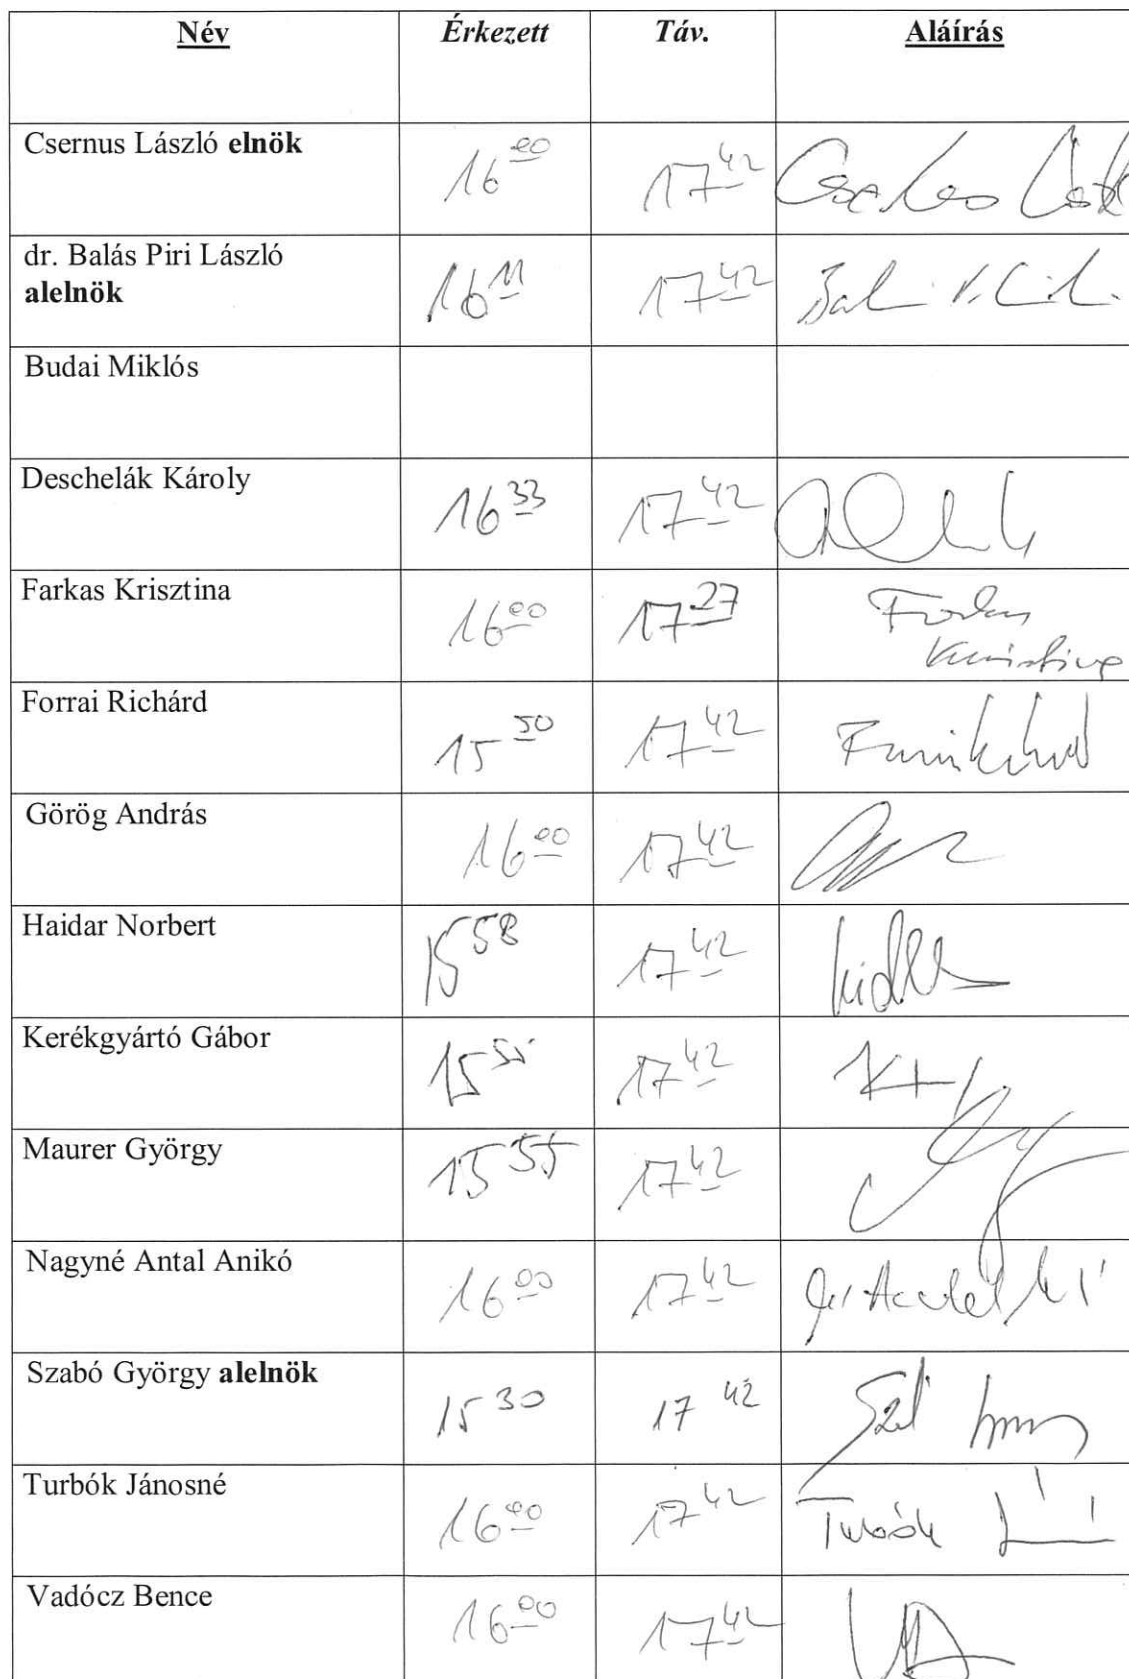 Név Érkezett Táv. Aláírás
Csernus László elnök 16 00 17 42
dr. Balás Piri László
alelnök 16 11 17 42
Budai Miklós
Deschelák Károly 16 33 17 42
Farkas Krisztina 16 00 17 27 Farkas
Krisztina
Forrai Richárd 15 50 17 42
Görög András 16 00 17 42
Haidar Norbert 15 58 17 42
Kerékgyártó Gábor 15 55 17 42
Maurer György 15 55 17 42
Nagyné Antal Anikó 16 00 17 42
Szabó György alelnök 15 30 17 42
Turbók Jánosné 16 00 17 42 Turbók
Vadócz Bence 16 00 17 42